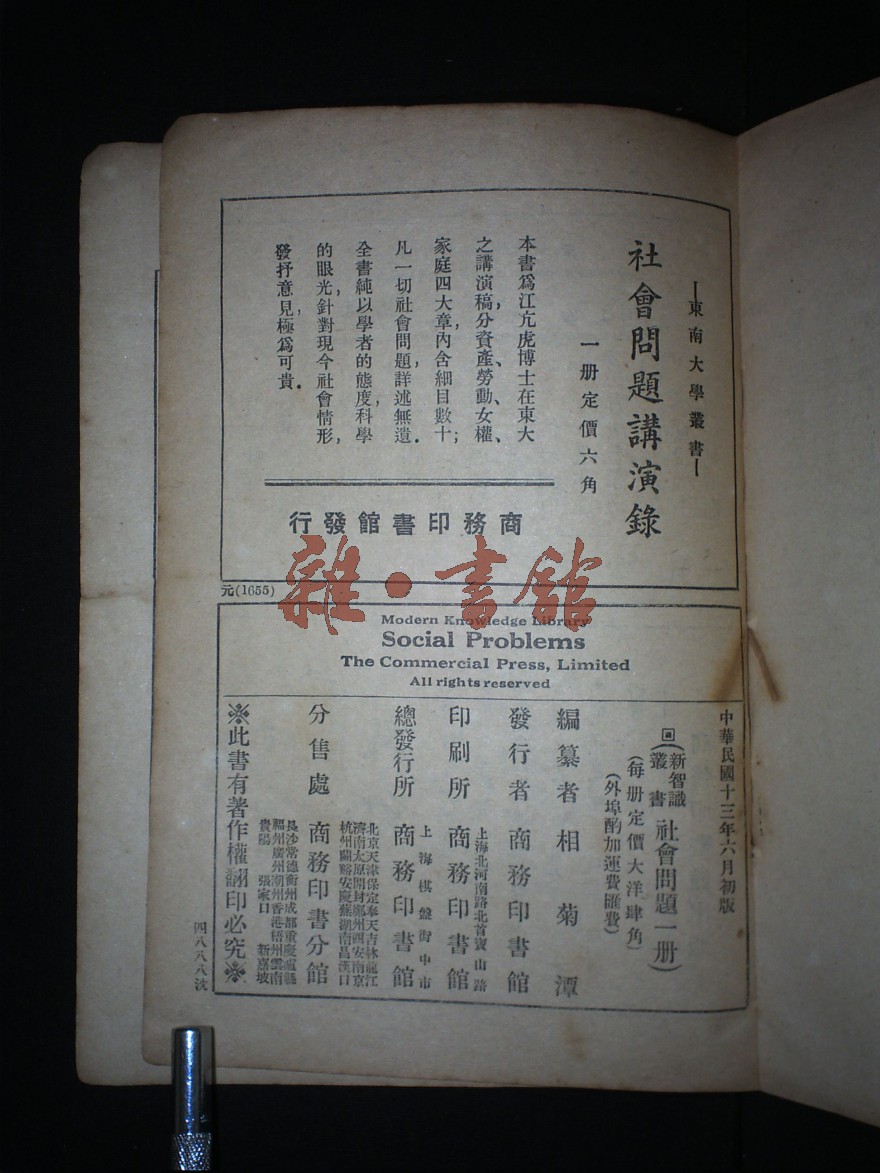 —東南大學叢書—
社會問題講演錄
一册定價六角
本書爲江亢虎博士在東大
之講演稿,分資產、勞動、女權、
家庭四大章,內含細目數十;
凡一切社會問題,詳述無遺.
全書純以學者的態度,科學
的眼光,針對現今社會情形,
發抒意見,極爲可貴.
商務印書館發行
元(1655)
雜·書館
Modern Knowledge Library
Social Problems
The Commercial Press, Limited
All rights reserved
中華民國十三年六月初版
(新智識叢書 社會問題一册)
(每册定價大洋肆角)
(外埠酌加運費匯費)
編纂者 相菊潭
發行者 商務印書館
上海北河南路北首寶山路
印刷所 商務印書館
上海棋盤街中市
總發行所 商務印書館
北京天津保定奉天吉林龍江
濟南太原開封鄭州西安南京
杭州蘭谿安慶蕪湖南昌漢口
分售處 商務印書分館
長沙常德衡州成都重慶瀘縣
福州廣州潮州香港梧州雲南
貴陽 張家口 新嘉坡
※此書有著作權翻印必究※
四八八八沈